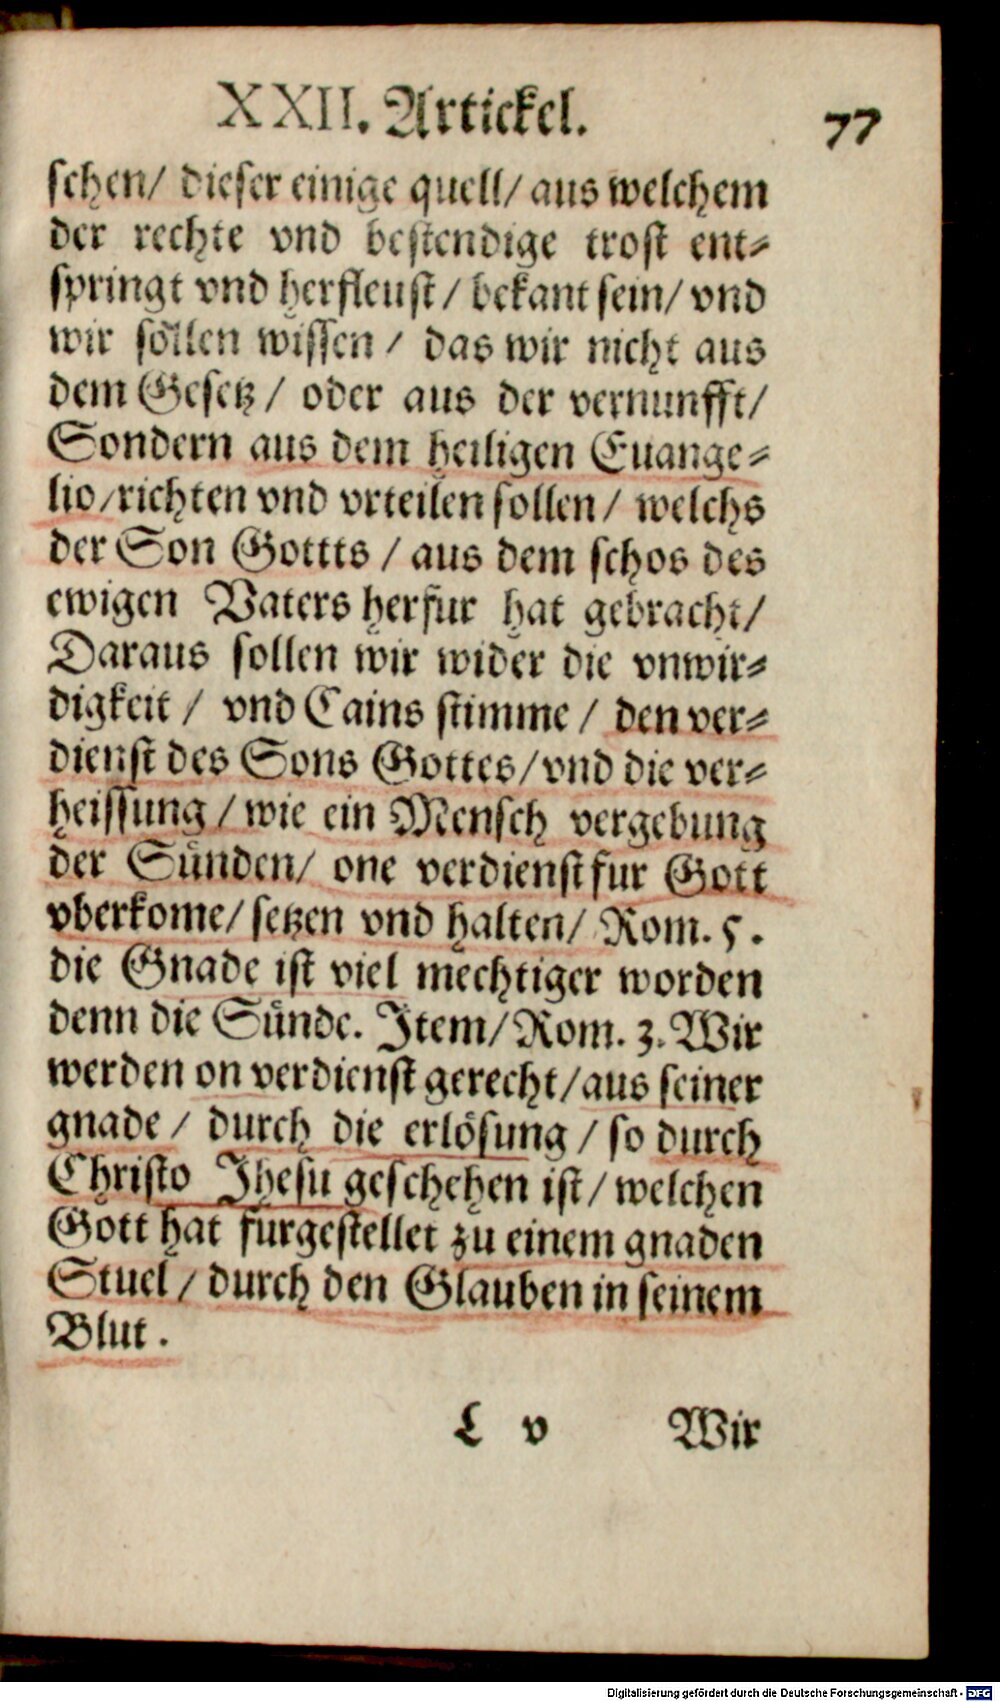 XXII. Artickel. 77
schen/ dieser einige quell/ aus welchem
der rechte vnd bestendige trost ent⸗
springt vnd herfleust/ bekant sein/ vnd
wir söllen wissen/ das wir nicht aus
dem Gesetz/ oder aus der vernunfft/
Sondern aus dem heiligen Euange⸗
lio/richten vnd vrteilen sollen/ welchs
der Son Gottts/ aus dem schos des
ewigen Vaters herfür hat gebracht/
Daraus sollen wir wider die vnwir⸗
digkeit/ vnd Cains stimme/ den ver⸗
dienst des Sons Gottes/vnd die ver⸗
heissung/wie ein Mensch vergebung
der Sünden/ one verdienst fur Gott
vberkome/ setzen vnd halten/ Rom. 5.
die Gnade ist viel mechtiger worden
denn die Sünde. Item/Rom. 3. Wir
werden on verdienst gerecht/aus seiner
gnade/ durch die erlösung/ so durch
Christo Jhesu geschehen ist/ welchen
Gott hat fürgestellet zu einem gnaden
Stuel/ durch den Glauben in seinem
Blut.
L v Wir
Digitalisierung gefördert durch die Deutsche Forschungsgemeinschaft - DFG